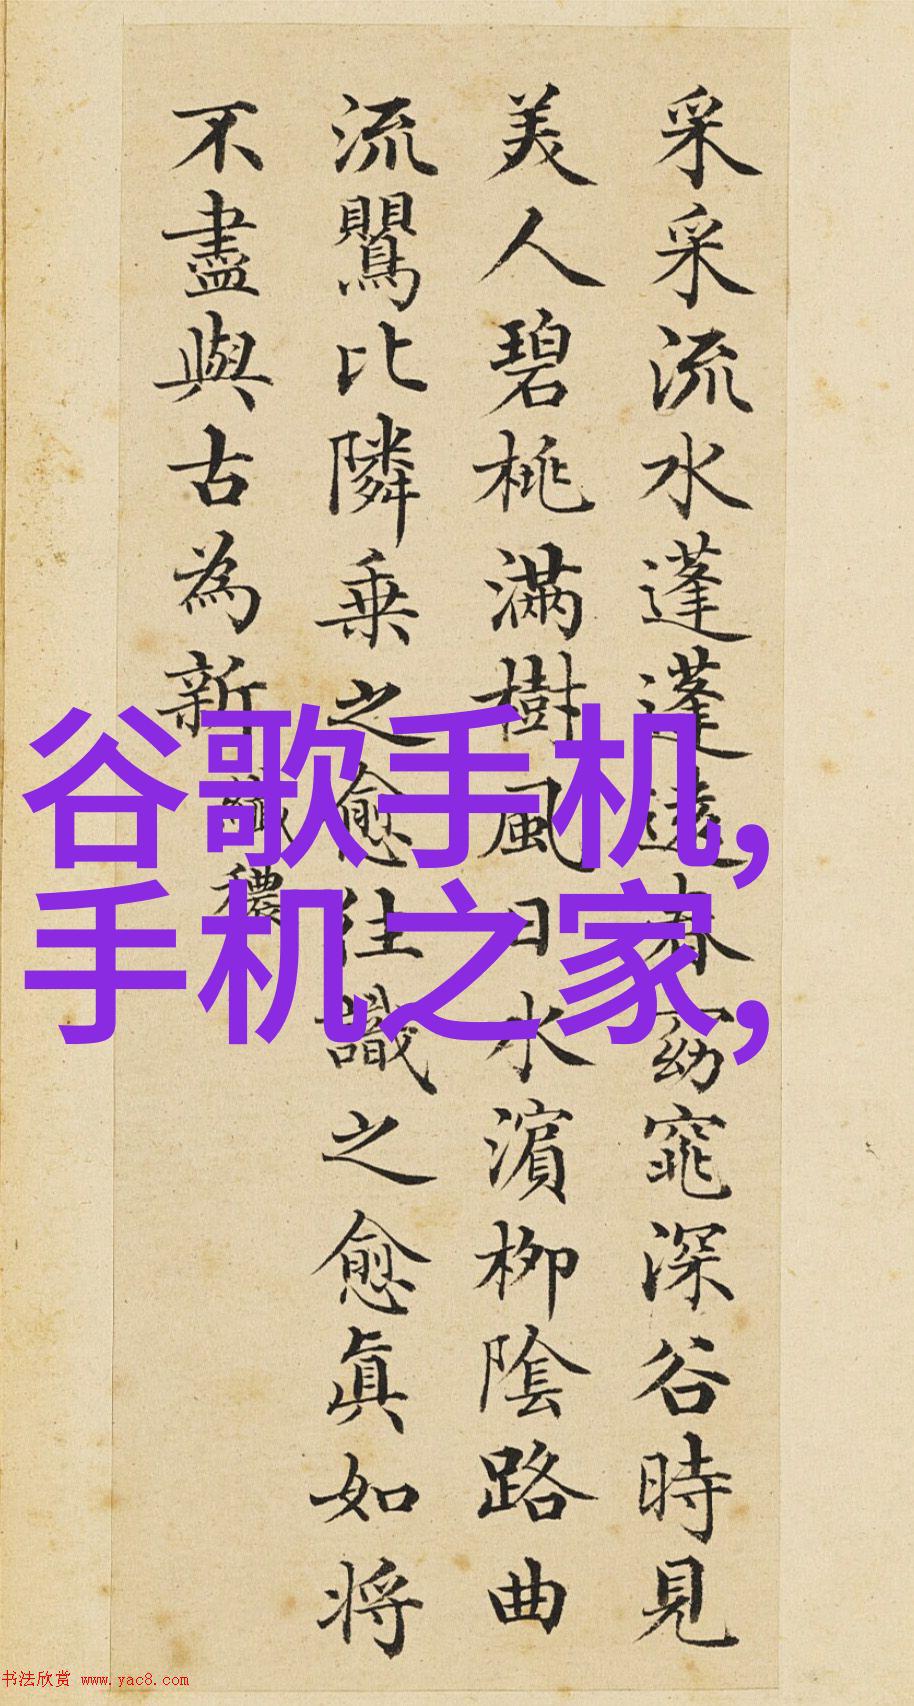 采采流水蓬蓬遠春窈窕深谷時見
美人碧桃滿樹風日水濱柳陰路曲
流鶯比隣乗之愈往識之愈眞如将
不盡與古為新
纖穠
谷歌手机,
手机之家,
书法欣赏 www.yac8.com